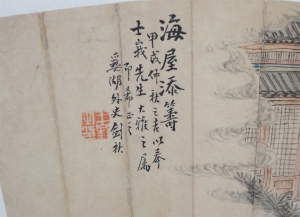 海屋添籌
甲戌仲秋之吉以奉
士義先生大雅之屬
即希正之
蕪湖外史劍秋